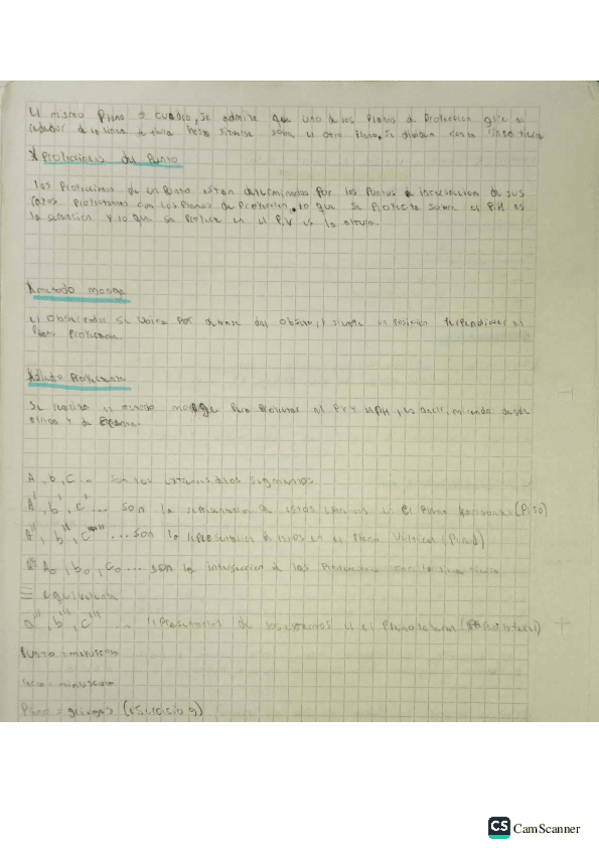 el mismo Plano o cuadro, se admite que uno de los Planos de Proyeccion gire al
rededor de la linea de tierra hasta situarse sobre el otro Plano, Se dividen con la linea tierra
Proyecciones del Punto
Las Proyecciones de un Punto estan determinadas Por los Puntos de interseccion de sus
Proyectantes con los Planos de Proyeccion, lo que se Proyecta sobre el P.H es
la y lo que se Proyecta en el P.V es la altura.
metodo monge
el Observador se Ubica Por delante del Objeto, y siempre en Posicion Perpendicular al
Plano Proyeccion.
Se realiza el metodo monge Para Proyectar al PV y el PH, es decir, mirando desde
arriba y de
A, b, C... son los extremos de los Segmentos
A', b', C'... son la representacion de estos extremos en el Plano horizontal (Piso)
A'', b'', C''... son la representacion de estos en el Plano Vertical (Pared)
A₀, b₀, C₀... son la interseccion de las con la linea tierra
≡ equivalente
a''', b''', C'''... representacion de los extremos en el Plano lateral
Punto = mayuscula
recta = minuscula
Plano = griegas
CS CamScanner